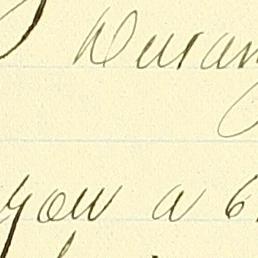 Duran
you a 6